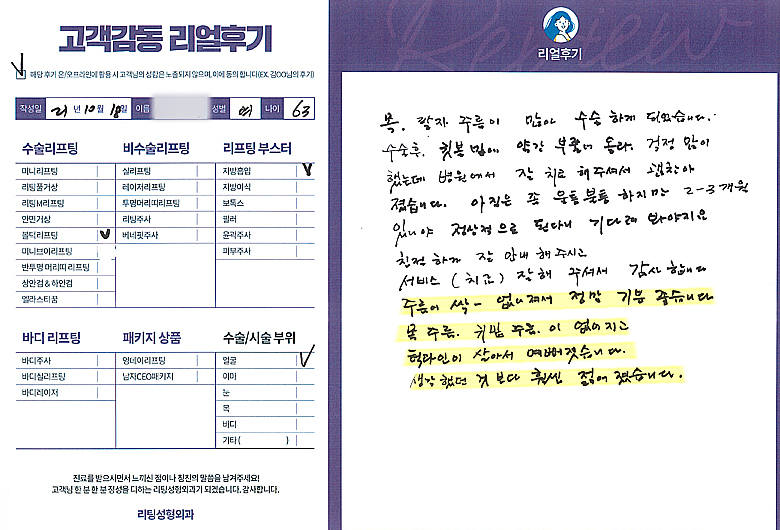 고객감동 리얼후기
해당 후기 온/오프라인에 활용 시 고객님의 성함은 노출되지 않으며, 이에 동의 합니다(EX. 김OO님의 후기)
작성일 21년 10월 18일 이름 성별 여 나이 63
수술리프팅
미니리프팅
리팅풀거상
리팅M리프팅
안면거상
볼턱리프팅
미니브이리프팅
반투명 머리띠 리프팅
상안검 & 하안검
엘라스티꿈
비수술리프팅
실리프팅
레이저리프팅
투명머리띠리프팅
리팅주사
베네핏주사
리프팅 부스터
지방흡입
지방이식
보톡스
필러
윤곽주사
피부주사
바디 리프팅
바디주사
바디실리프팅
바디레이저
패키지 상품
엄데이리프팅
남자CEO패키지
수술/시술 부위
얼굴
이마
눈
목
바디
기타 ( )
진료를 받으시면서 느끼신 점이나 칭찬의 말씀을 남겨주세요!
고객님 한 분 한 분 정성을 다하는 리팅성형외과가 되겠습니다. 감사합니다.
리팅성형외과
Review
리얼후기
목. 팔자 주름이 많아 수술 하게 되었습니다.
수술후. 귓볼 밑에 약간 부풀어 올라. 걱정 많이
했는데 병원에서 잘 치료 해주셔서 괜찮아
졌습니다. 아직은 좀 울퉁불퉁 하지만 2-3개월
있어야 정상적으로 된다니 기다려 봐야지요
친절 하게 잘 안내 해주시고
서비스 (치료) 잘해 주셔서 감사 합니다
주름이 싹- 없어져서 정말 기분 좋습니다
목 주름. 귀밑 주름. 이 없어지고
턱라인이 살아서 예뻐졌습니다.
생각했던 것 보다 훨씬 젊어 졌습니다.